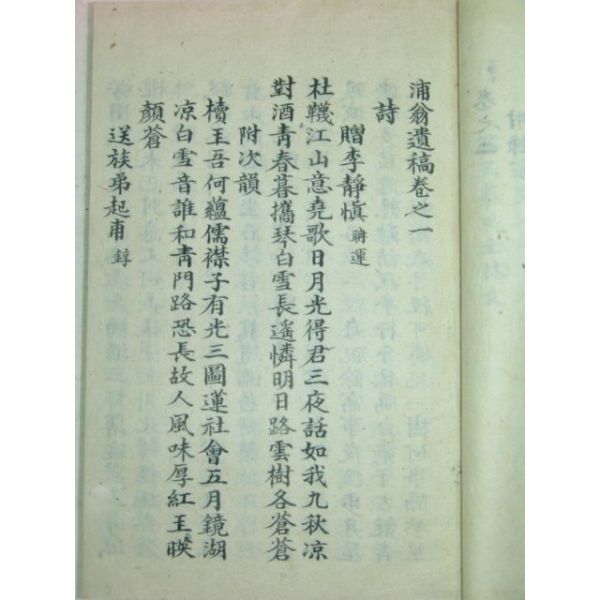 浦翁遺稿卷之一
詩
贈李靜愼 聃運
杜鞿江山意堯歌日月光得君三夜話如我九秋凉
對酒靑春暮攜琴白雪長遙憐明日路雲樹各蒼蒼
附次韻
櫝王吾何蘊儒襟子有光三圖蓮社會五月鏡湖
凉白雪音誰和靑門路恐長故人風味厚紅王暎
顏蒼
送族弟起甫 錞